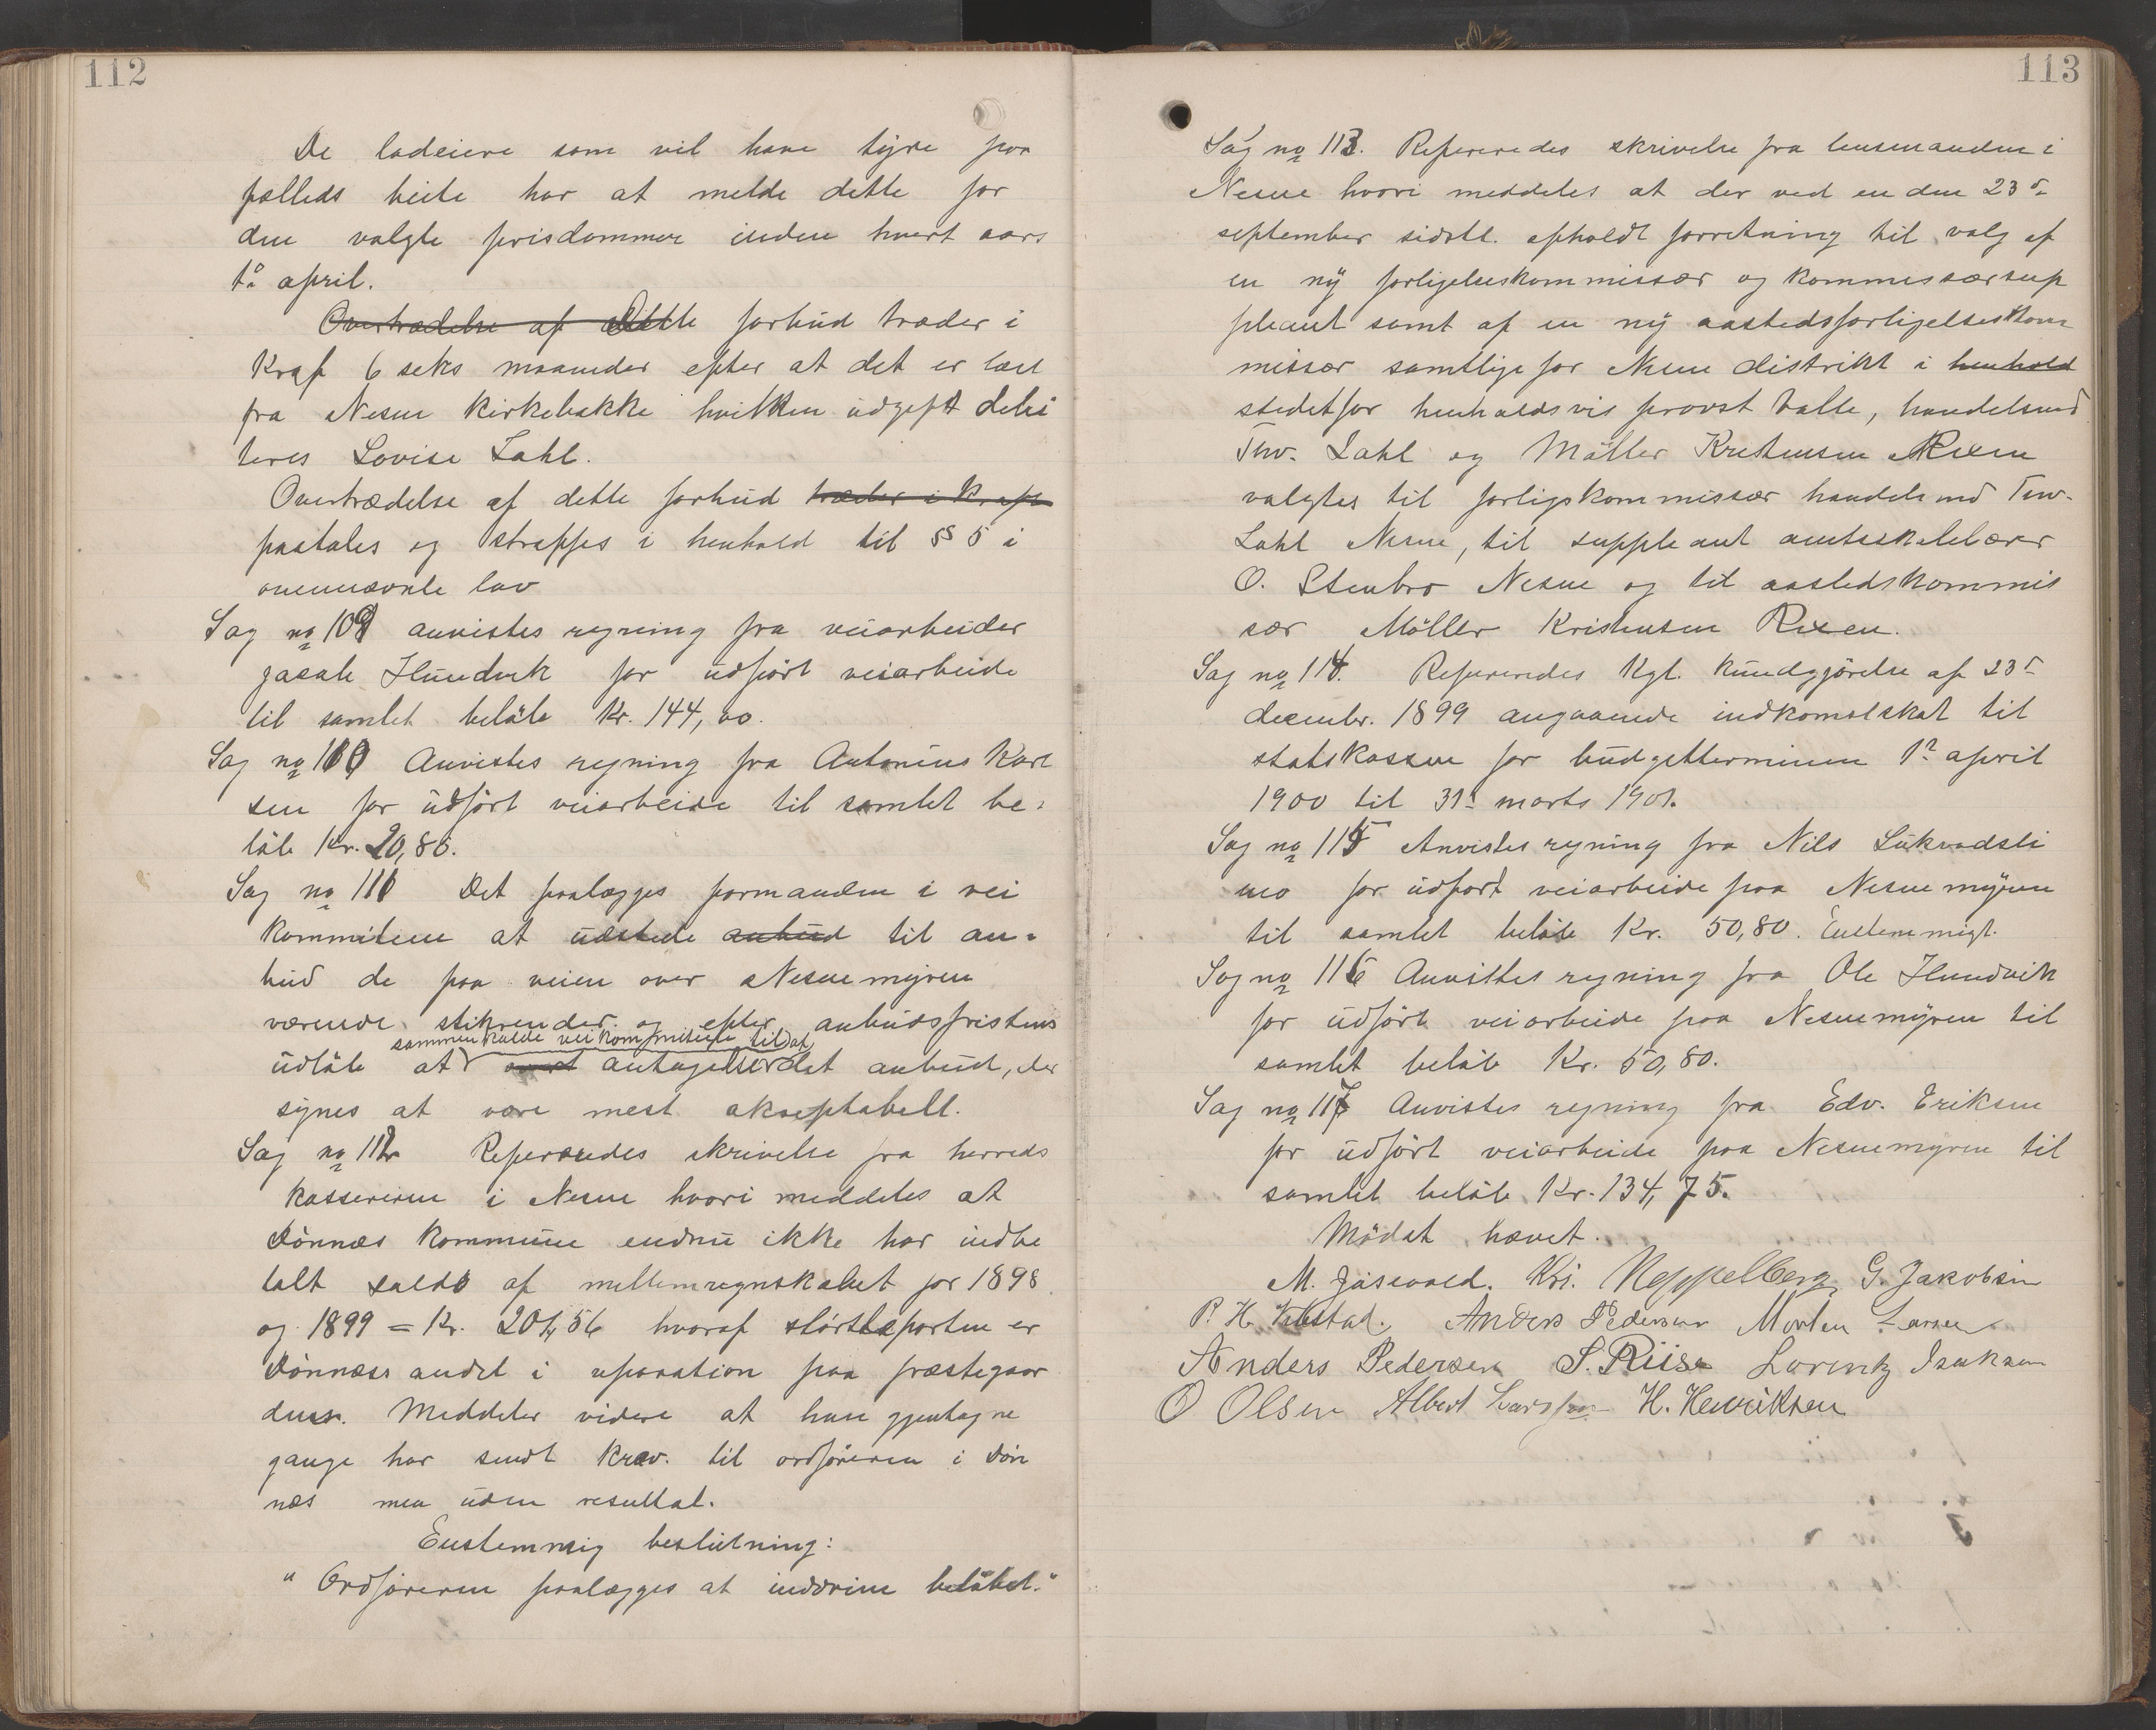 112
De ladeiere som vil have tyre paa
fælleds beite har at melde dette for
den valgte prisdommer inden hvert aars
1ste april.
Overtrædelse af Dette forbud træder i
Kraf 6 seks maaneder efter at det er læst
fra Nesne kirkebakke hvilken udgeft debi
teres Lovise Zahl.
Overtrædelse af dette forbud træder i Kraft
paatales og straffes i henhold til §§ 5 i
ovennævnte lov
Sag no 109 anvistes regning fra veiarbeider
Hundvik for udført veiarbeide
til samlet beløb Kr. 144,00.
Sag no 110 Anvistes regning fra Antonius Karl
sen for udført veiarbeide til samlet be-
løb Kr. 20,80.
Sag no 111 Det paalægges formanden i vei
kommiteen at udstede anbud til an-
bud de paa veien over Nesnemyren
værende stikrender og efter anbudsfristens
sammenkalde veikommiteen til at
udløb at antagelse det anbud, der
synes at være mest akseptabelt.
Sag no 112 Refereredes skrivelse fra herreds
kassereren i Nesne hvori meddeles at
Dønnes Kommune endnu ikke har indbe
talt saldo af mellemregnskabet for 1898
og 1899 = Kr. 201,56 hvoraf størsteparten er
Dønnæs andel i reparation paa præstegaar
den. Meddeler videre at han gjentagne
gange har sendt krav til ordføreren i Døn
næs men uden resultat.
Enstemmig beslutning:
"Ordføreren paalægges at inddrive beløbet."
113
Sag no 113. Refereredes skrivelse fra lensmanden i
Nesne hvori meddeles at der ved en den 23de
september sidstl. afholdt forretning til valg af
en ny forligelseskommissær og kommissærsup
pleant samt af en ny aastedsforligelseskom
missær samtlige for Nesne distrikt i henhold
stedetfor henholdsvis provst Balle, handelsmd
Thv. Zahl og Møller Kristensen Rixen
valgtes til forligskommissær handelsmd Thv.
Zahl Nesne, til suppleant amtsskolelærer
O. Stenbro Nesne og til aastedskommis
sær Møller Kristensen Rixen.
Sag no 114. Refereredes Kgl. Kundgjørelse af 23de
decembr. 1899 angaaende indkomstskat til
statskassen for budgetterminen 1ste april
1900 til 31te marts 1901.
Sag no 115 Anvistes regning fra Nils
mo for udført veiarbeide paa Nesnemyren
til samlet beløb Kr. 50,80. Enstemmigt.
Sag no 116 Anvistes regning fra Ole Hundvik
for udført veiarbeide paa Nesnemyren til
samlet beløb Kr. 50,80.
Sag no 117 Anvistes regning fra Edv. Eriksen
for udført veiarbeide paa Nesnemyren til
samlet beløb Kr. 134,75.
Mødet hævet.
M. Jøsevold. Kri. Meppelberg G. Jakobsen
P. H. Anders Pedersen Morten Larsen
Anders Pedersen S. Riise Lorentz Isaksen
O Olsen Albert H. Henriksen